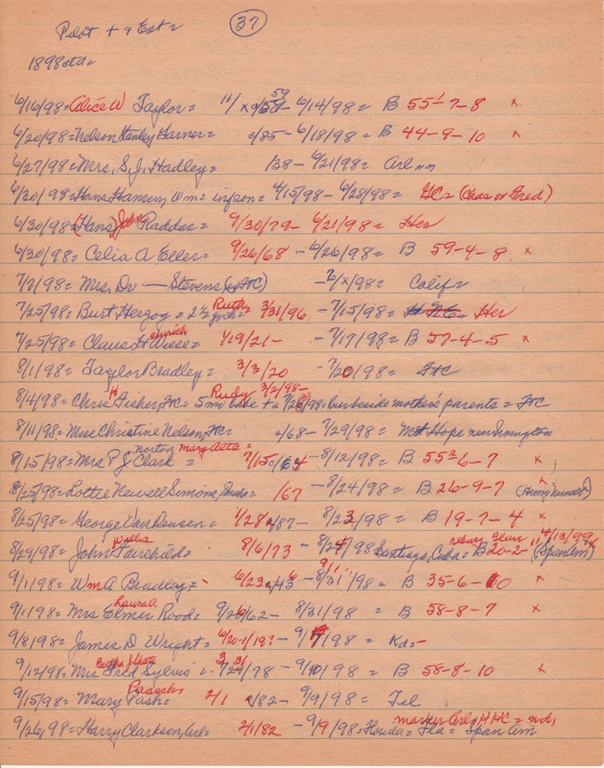 Pilot + & Est = (37)
1898 ctd =
6/16/98 = Alice W Taylor = 11/x 0/59 - 6/14/98 = B 55-7-8 x
6/20/98 = Nelson Stanley Garner = 0/25 - 6/18/98 = B 44-9-10 x
6/27/98 = Mrs. S. J. Hadley = /38 - 6/21/98 = Arl
6/30/98 = Hans Hansen, Wm = inf son = 4/15/98 - 6/28/98 = HC = (Chas or Fred)
6/30/98 (Hans) John Raddas = 9/30/79 - 6/21/98 = Her
6/30/98 = Celia A Eller = 9/26/68 - 6/26/98 = B 59-4-8 x
7/7/98 = Mrs. Dr — Stevens ( HC) - 7/x/98 = Calif =
7/25/98 = Burt Herzog = 2 1/2 Ruth 3/31/96 - 7/15/98 = Her
7/25/98 = Claus Hinrich Wiese = 1/19/21 - - 7/17/98 = B 57-4-5 x
8/1/98 = Taylor Bradley = 3/3/20 - 7/20/98 = HC
8/4/98 = Chris H Fisher, HC = 5 mo babe Rudy 3/2/98 - 7/26/98 = bur beside mother's parents = HC
8/11/98 = Miss Christine Nelson, HC = 0/68 - 7/29/98 = Mt Hope near
8/15/98 = Mrs P J Clark = norton Mary Aeta = 7/15/64 - 8/12/98 = B 55-6-7 x
8/25/98 = Lottie Newell Simons = /67 - 8/24/98 = B 26-9-7 x
8/25/98 = George Van Deusen = 1/28/87 - 8/23/98 = B 19-7-4 x
8/29/98 = John Willis Fairchild = 8/6/73 - 8/24/98 Santiago, Cuba = reburg Blair 4/13/99 B 20-2-11 (Span Am)
9/1/98 = Wm A Bradley = 6/23/43 - 8/31/98 = B 35-6-10 x
9/1/98 = Mrs Laura A Elmer Rood = 9/26/62 - 8/31/98 = B 58-8-7 x
9/8/98 = James D Wright = 4/20-1/19? - 9/7/98 = Ks. -
9/12/98 = Mrs Fred Sylvis = 3/31 7/24/98 - 9/10/98 = B 58-8-10 x
9/15/98 = Mary Pash = 2/1 /82 - 9/9/98 = Tel
9/26/98 = Harry Clarkson, Arl = 2/1/82 - 9/9/98 = Florida = Fla = Span Am marker Arl, HHC = nd,